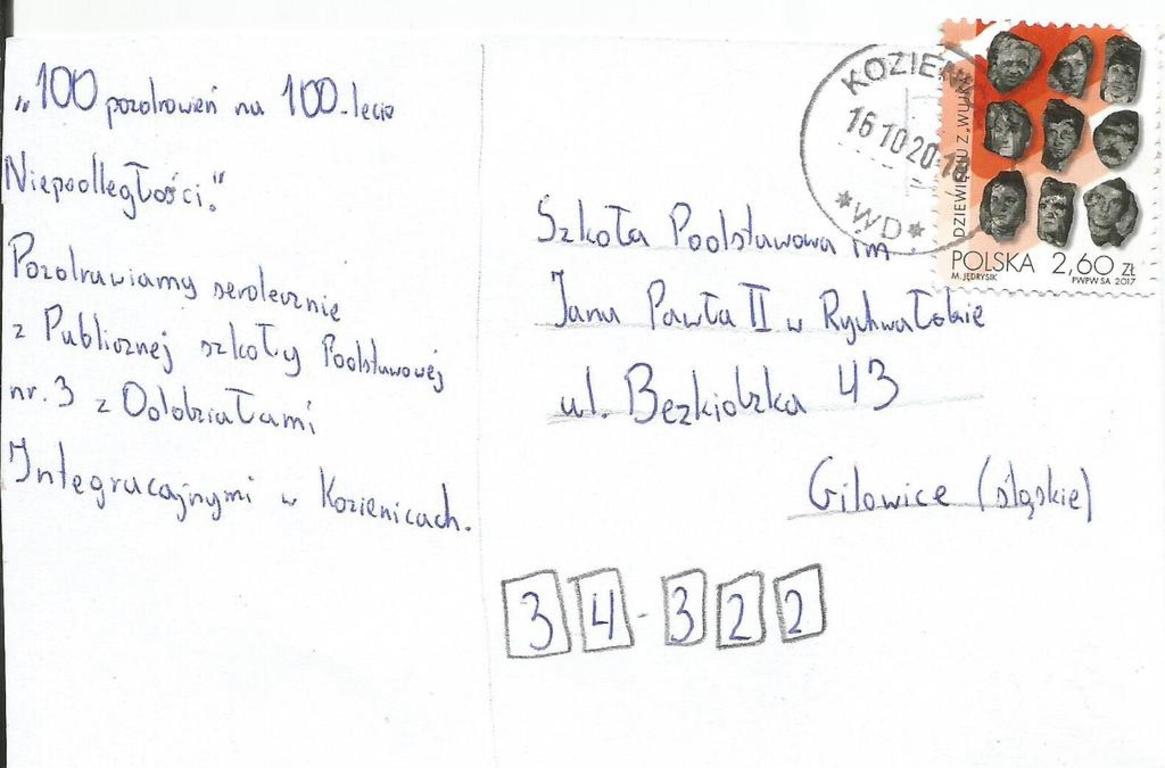 „100 pozdrowień na 100-lecie
Niepodległości."
Pozdrawiamy serdecznie
z Publicznej szkoły Podstawowej
nr. 3 z Oddziałami
Integracajnymi w Kozienicach.
KOZIENI
16 10 20
*WD*
DZIEWIĘCIU Z „WUJKA"
POLSKA 2,60 ZŁ
M. JĘDRYSIK PWPW SA 2017
Szkoła Podstawowa im
Jana Pawła II w Rychwałdzie
ul. Bezkidzka 43
Gilowice (śląskie)
34-322